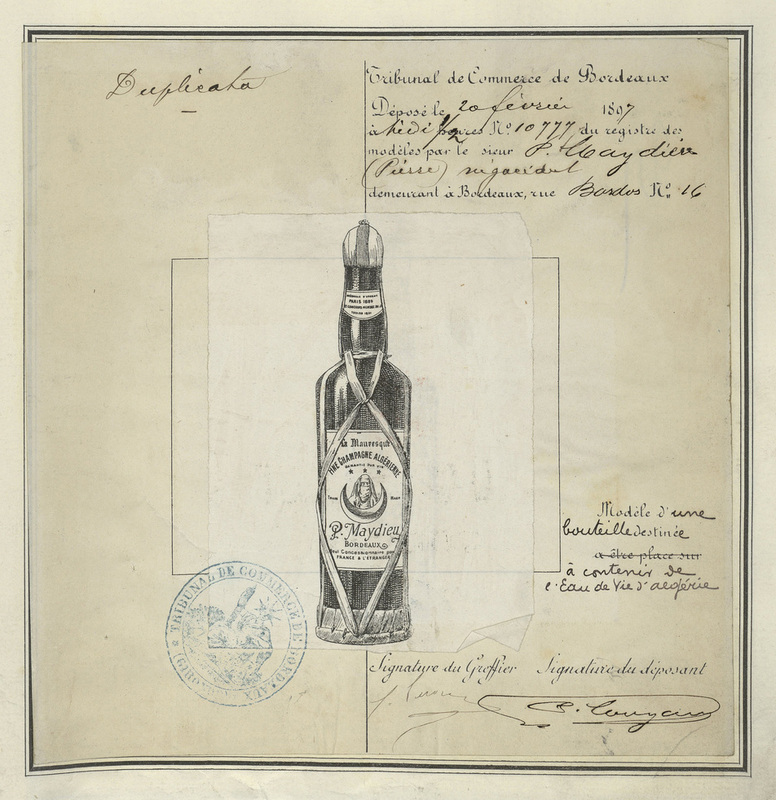 Duplicata
Tribunal de Commerce de Bordeaux
Déposé le 20 février 1897
à Midi 1/2 heures No 10777 du registre des
modèles par le sieur P. Maydieu
(Pierre) négociant
demeurant à Bordeaux, rue No 16
PARIS 1889
La Mauresque
FINE CHAMPAGNE ALGÉRIENNE
GARANTIE PUR VIN
P. Maydieu
BORDEAUX
Seul Concessionnaire pour
FRANCE & L'ETRANGER
Modèle d'une
bouteille destinée
à être placé sur
à contenir de
l'Eau de Vie d'algérie
TRIBUNAL DE COMMERCE DE BORDEAUX
(GIRONDE)
Signature du Greffier Signature du déposant